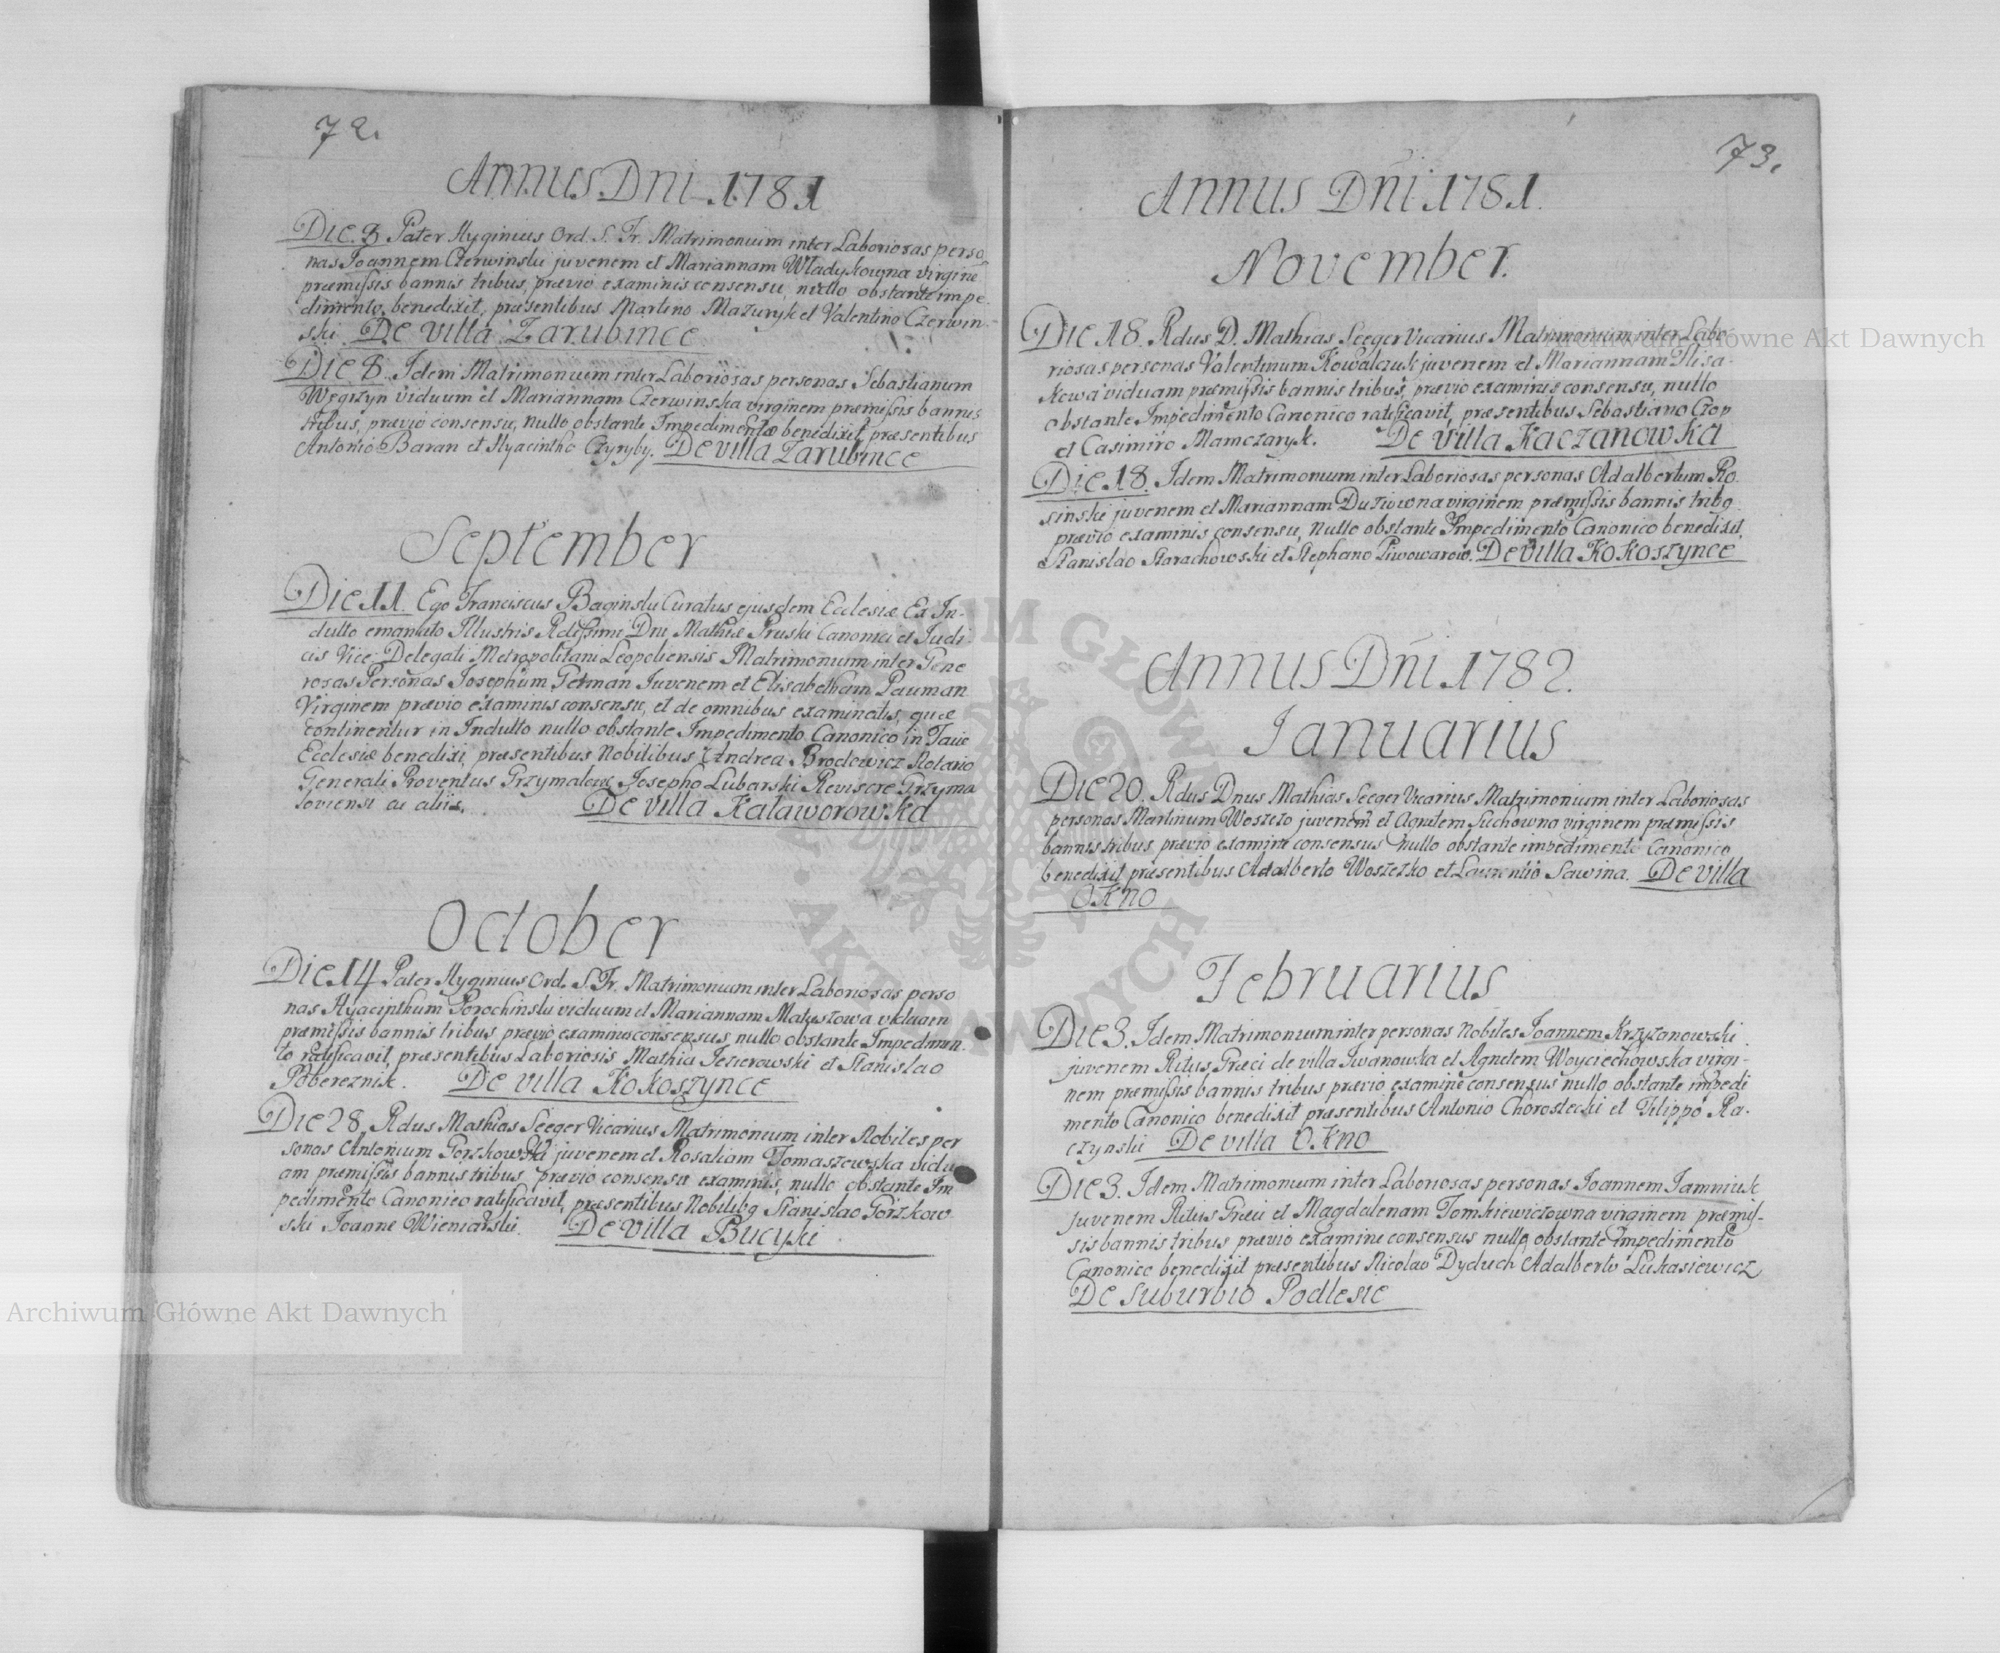 72.
Annus Dni 1781
Die 8 Pater Hyginius Ord. S. Fr. Matrimonium inter Laboriosas perso
nas Joannem Czerwinski juvenem et Mariannam Władykowna virginē
præmissis bannis tribus, prævio examinis consensu, nullo obstante impe-
dimento, benedixit, præsentibus Martino Mazuryk et Valentino Czerwin-
ski. De villa Zarubince
Die 8. Idem Matrimonium inter Laboriosas personas Sebastianum
Węgrzyn viduum et Mariannam Czerwinska virginem præmissis bannis
tribus, prævio consensu, nullo obstante Impedimento benedixit præsentibus
Antonio Baran et Hyacintho Czyryby. De villa Zarubince
September
Die 11. Ego Franciscus Baginski Curatus ejusdem Ecclesiæ Ex In-
dulto emanato Illustris Rdissimi Dni Mathiæ Pruski Canonici et Judi-
cis Vice Delegati Metropolitani Leopoliensis Matrimonium inter Gene
rosas Personas Josephum German Juvenem et Elisabetham Pauman
Virginem prævio examinis consensu, et de omnibus examinatis, quæ
continentur in Indulto nullo obstante Impedimento Canonico in Facie
Ecclesiæ benedixi, præsentibus Nobilibus Andrea Brodowicz Notario
Generali Proventus Grzymałow Josepho Lubarski Revisore Grzyma
loviensi ac aliis. De villa Kaławorowka
October
Die 14 Pater Hyginius Ord. S. Fr. Matrimonium inter Laboriosas perso
nas Hyacinthum Porochinski viduum et Mariannam Matuszowa viduam
præmissis bannis tribus, prævio examinis consensus, nullo obstante Impedimen-
to ratificavit, præsentibus Laboriosis Mathia Jezierowski et Stanislao
Pobereznik. De villa Kokoszynce
Die 28. Rdus Mathias Seeger Vicarius Matrimonium inter Nobiles per
sonas Antonium Gorzkowski juvenem et Rosaliam Tomaszewska vidu
am præmissis bannis tribus prævio consensu examinis, nullo obstante Im
pedimento Canonico ratificavit, præsentibus Nobilibq Stanislao Gorzkow
ski Joanne Wieniarski. De villa Bucyki
73.
Annus Dni 1781.
November.
Die 18. Rdus D. Mathias Seeger Vicarius Matrimonium inter Labo-
riosas personas Valentinum Kowalczuk juvenem et Mariannam
kowa viduam præmissis bannis tribus, prævio examinis consensu, nullo
obstante Impedimento Canonico ratificavit, præsentibus Sebastiano Czop
et Casimiro Mamczaryk. De villa Kaczanowka
Die 18. Idem Matrimonium inter Laboriosas personas Adalbertum Ro-
sinski juvenem et Mariannam Duziowna virginem præmissis bannis tribq
prævio examinis consensu, nullo obstante Impedimento Canonico benedixit,
Stanislao Starachowski et Stephano Piwowarow. De villa Kokoszynce
Annus Dni 1782.
Ianuarius
Die 20. Rdus Dnus Mathias Seeger Vicarius Matrimonium inter Laboriosas
personas Martinum Woszczo juvenem et Agnetem Suchowna virginem præmissis
bannis tribus prævio examine consensus nullo obstante impedimento Canonico
benedixit præsentibus Adalberto Woszczko et Laurentio Sawina. De villa
Okno
Februarius
Die 3. Idem Matrimonium inter personas Nobiles Joannem Krzyzanowski
juvenem Ritus Græci de villa Iwanowka et Agnetem Woyciechowska virgi-
nem præmissis bannis tribus prævio examine consensus nullo obstante impedi
mento Canonico benedixit præsentibus Antonio Chorostecki et Filippo Ra-
czynski De villa Okno
Die 3. Idem Matrimonium inter Laboriosas personas Joannem Jamniuk
juvenem Ritus Græci et Magdalenam Tomkiewiczowna virginem præmis-
sis bannis tribus prævio examine consensus nullo obstante impedimento
Canonico benedixit præsentibus Nicolao Dyduch Adalberto Lukasiewicz
De Suburbio Podlesie
Archiwum Główne Akt Dawnych
Archiwum Główne Akt Dawnych